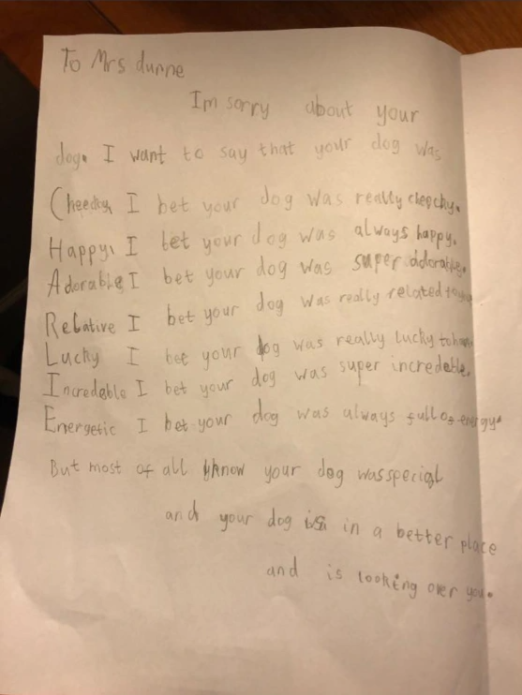 To Mrs dunne
Im sorry about your
dog. I want to say that your dog was
Cheeky, I bet your dog was really cheecky.
Happy, I bet your dog was always happy.
Adorable I bet your dog was super adorable.
Relative I bet your dog was really related to
Lucky I bet your dog was really lucky to
Incredable I bet your dog was super incredeble.
Energetic I bet your dog was always full of energy.
But most of all know your dog was special
and your dog is in a better place
and is looking over you.